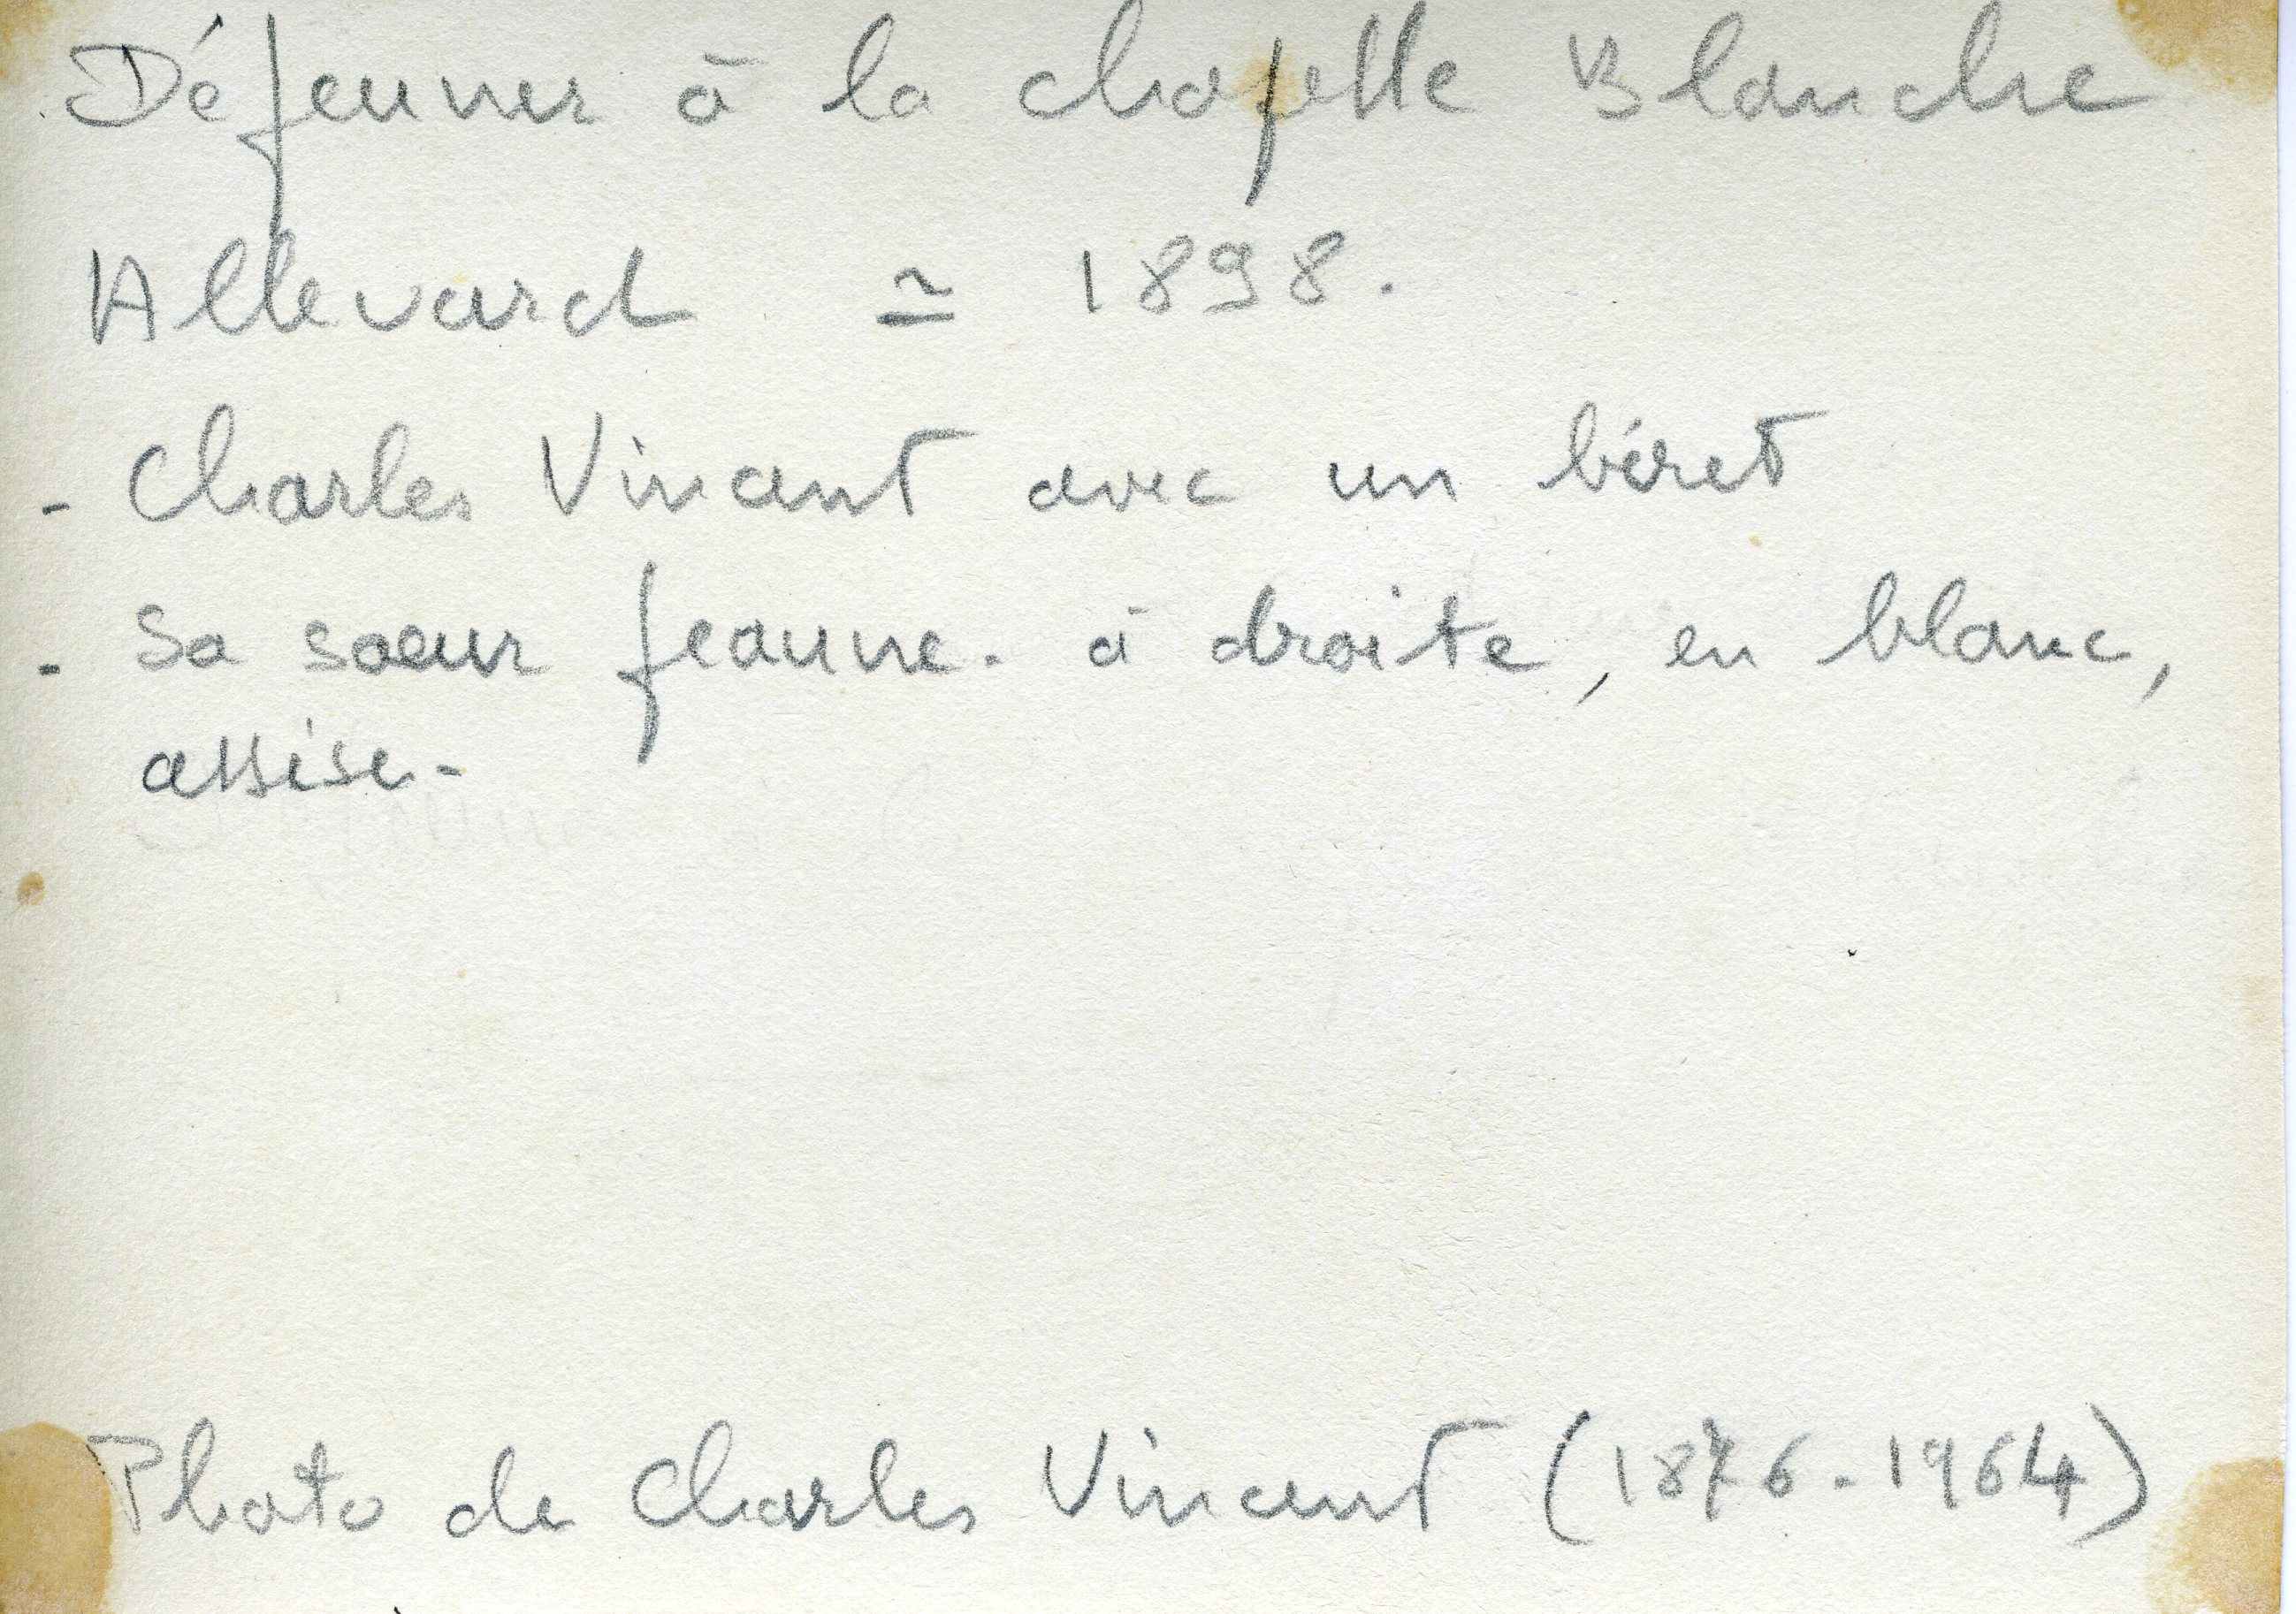 Déjeuner à la chapelle Blanche
Allevard ≃ 1898.
- Charles Vincent avec un béret
- Sa soeur Jeanne. à droite, en blanc,
assise.
Photo de Charles Vincent (1876-1964)